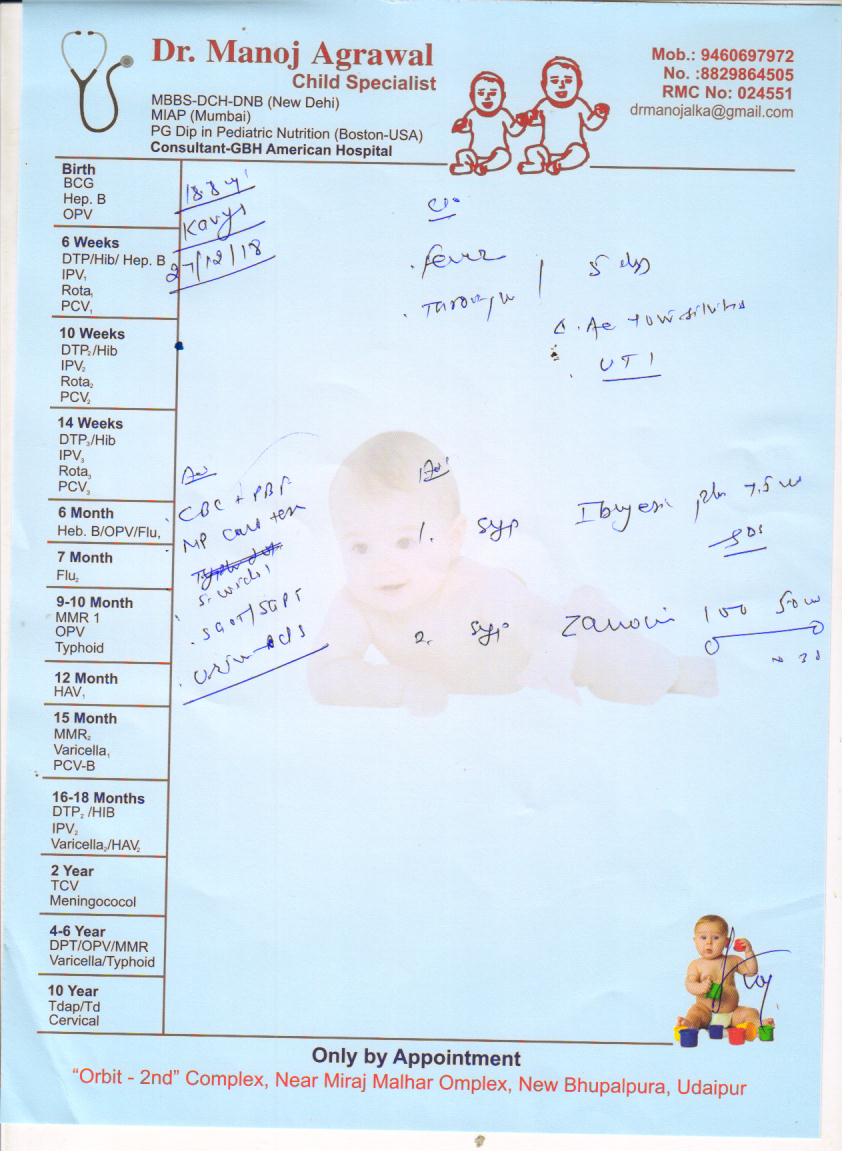 Dr. Manoj Agrawal
Child Specialist
MBBS-DCH-DNB (New Dehi)
MIAP (Mumbai)
PG Dip in Pediatric Nutrition (Boston-USA)
Consultant-GBH American Hospital
Mob.: 9460697972
No. :8829864505
RMC No: 024551
drmanojalka@gmail.com
Birth
BCG
Hep. B
OPV
6 Weeks
DTP/Hib/ Hep. B
IPV₁
Rota₁
PCV₁
10 Weeks
DTP₂/Hib
IPV₂
Rota₂
PCV₂
14 Weeks
DTP₃/Hib
IPV₃
Rota₃
PCV₃
6 Month
Heb. B/OPV/Flu₁
7 Month
Flu₂
9-10 Month
MMR 1
OPV
Typhoid
12 Month
HAV₁
15 Month
MMR₂
Varicella₁
PCV-B
16-18 Months
DTP₂ /HIB
IPV₂
Varicella₂/HAV₂
2 Year
TCV
Meningococol
4-6 Year
DPT/OPV/MMR
Varicella/Typhoid
10 Year
Tdap/Td
Cervical
27/12/18
fever
5
UTI
CBC + PBF
MP Card test
SGOT/SGPT
1. Syp
2. Syp 100
Only by Appointment
“Orbit - 2nd” Complex, Near Miraj Malhar Omplex, New Bhupalpura, Udaipur